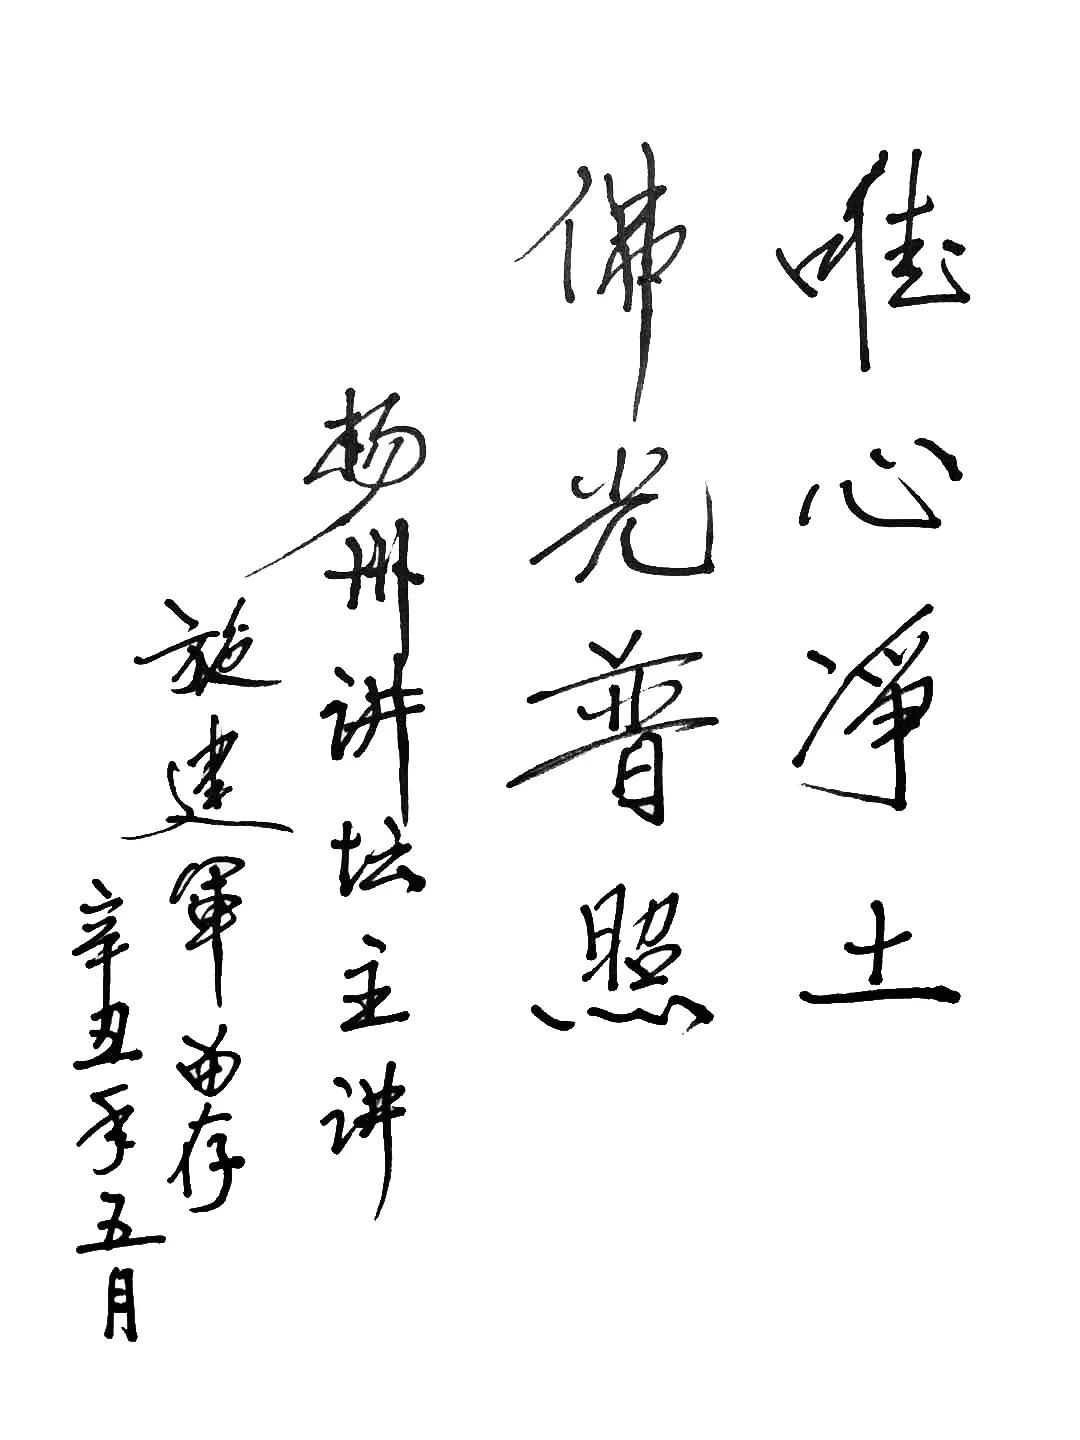 唯心净土
佛光普照
扬州讲坛主讲
施建軍留存
辛丑年五月